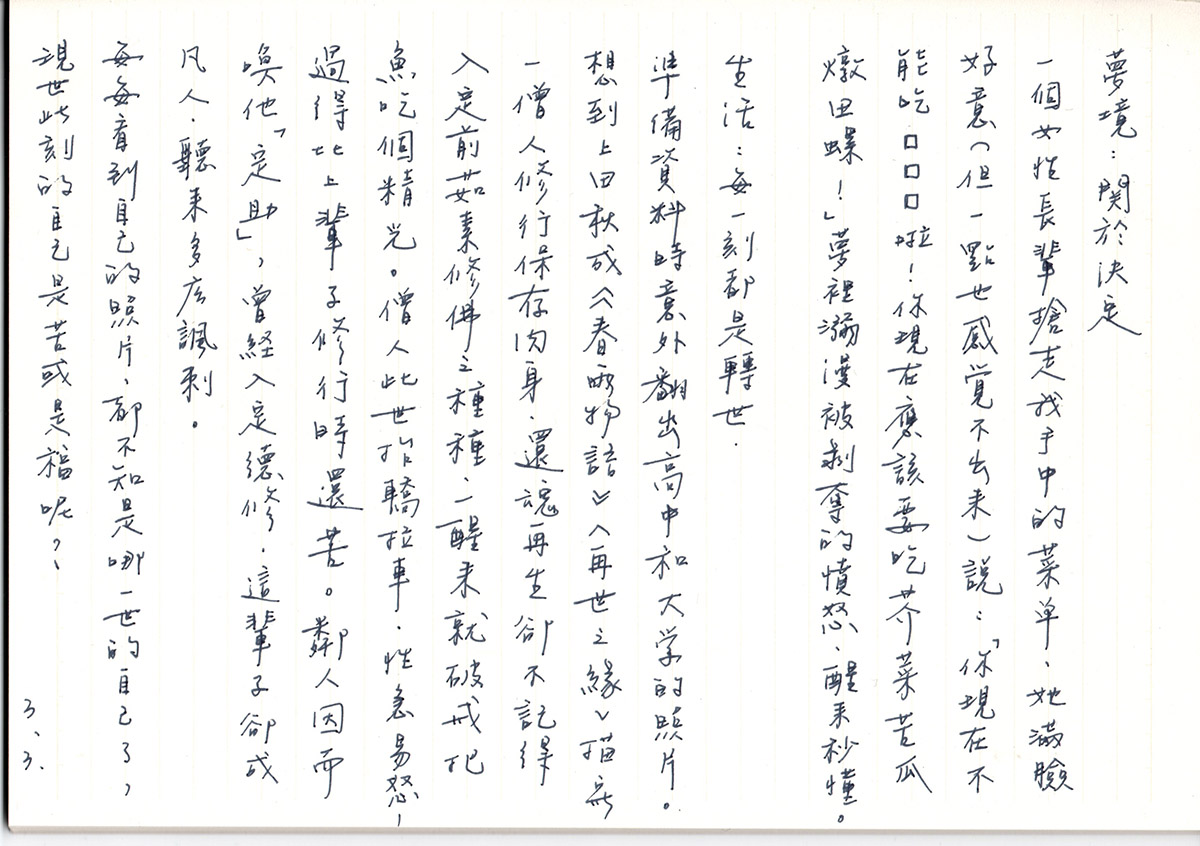 夢境：關於決定
一個女性長輩搶走我手中的菜單、她滿臉
好意(但一點也感覺不出来)説：「你現在不
能吃□□□啦！你現在應該要吃芥菜苦瓜
燉田螺！」夢裡瀰漫被剝奪的憤怒、醒来秒懂。
生活：每一刻都是轉世．
準備資料時意外翻出高中和大学的照片。
想到上田秋成《春雨物語》〈再世之緣〉描寫
一僧人修行保存肉身．還魂再生卻不記得
入定前茹素修佛之種種、一醒来就破戒把
魚吃個精光。僧人此世抬轎拉車．性急易怒，
過得比上輩子修行時還苦。鄰人因而
喚他「定助」，曾経入定德修．這輩子卻成
凡人．聽来多広諷刺。
每每看到自己的照片、都不知是哪一世的自己了，
現世此刻的自己是苦或是福呢？
3、3.